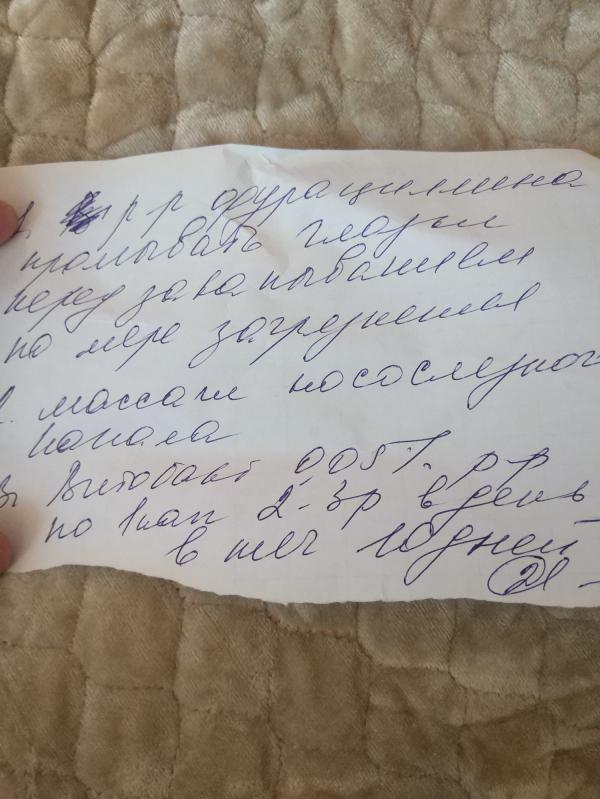 1. р р фурациллина
промывать глазки
перед закапыванием
по мере загрязнения
2. массаж носослезного
канала
3. Витабакт 0,05% р-р
по 1 кап 2-3р в день
в теч 10 дней